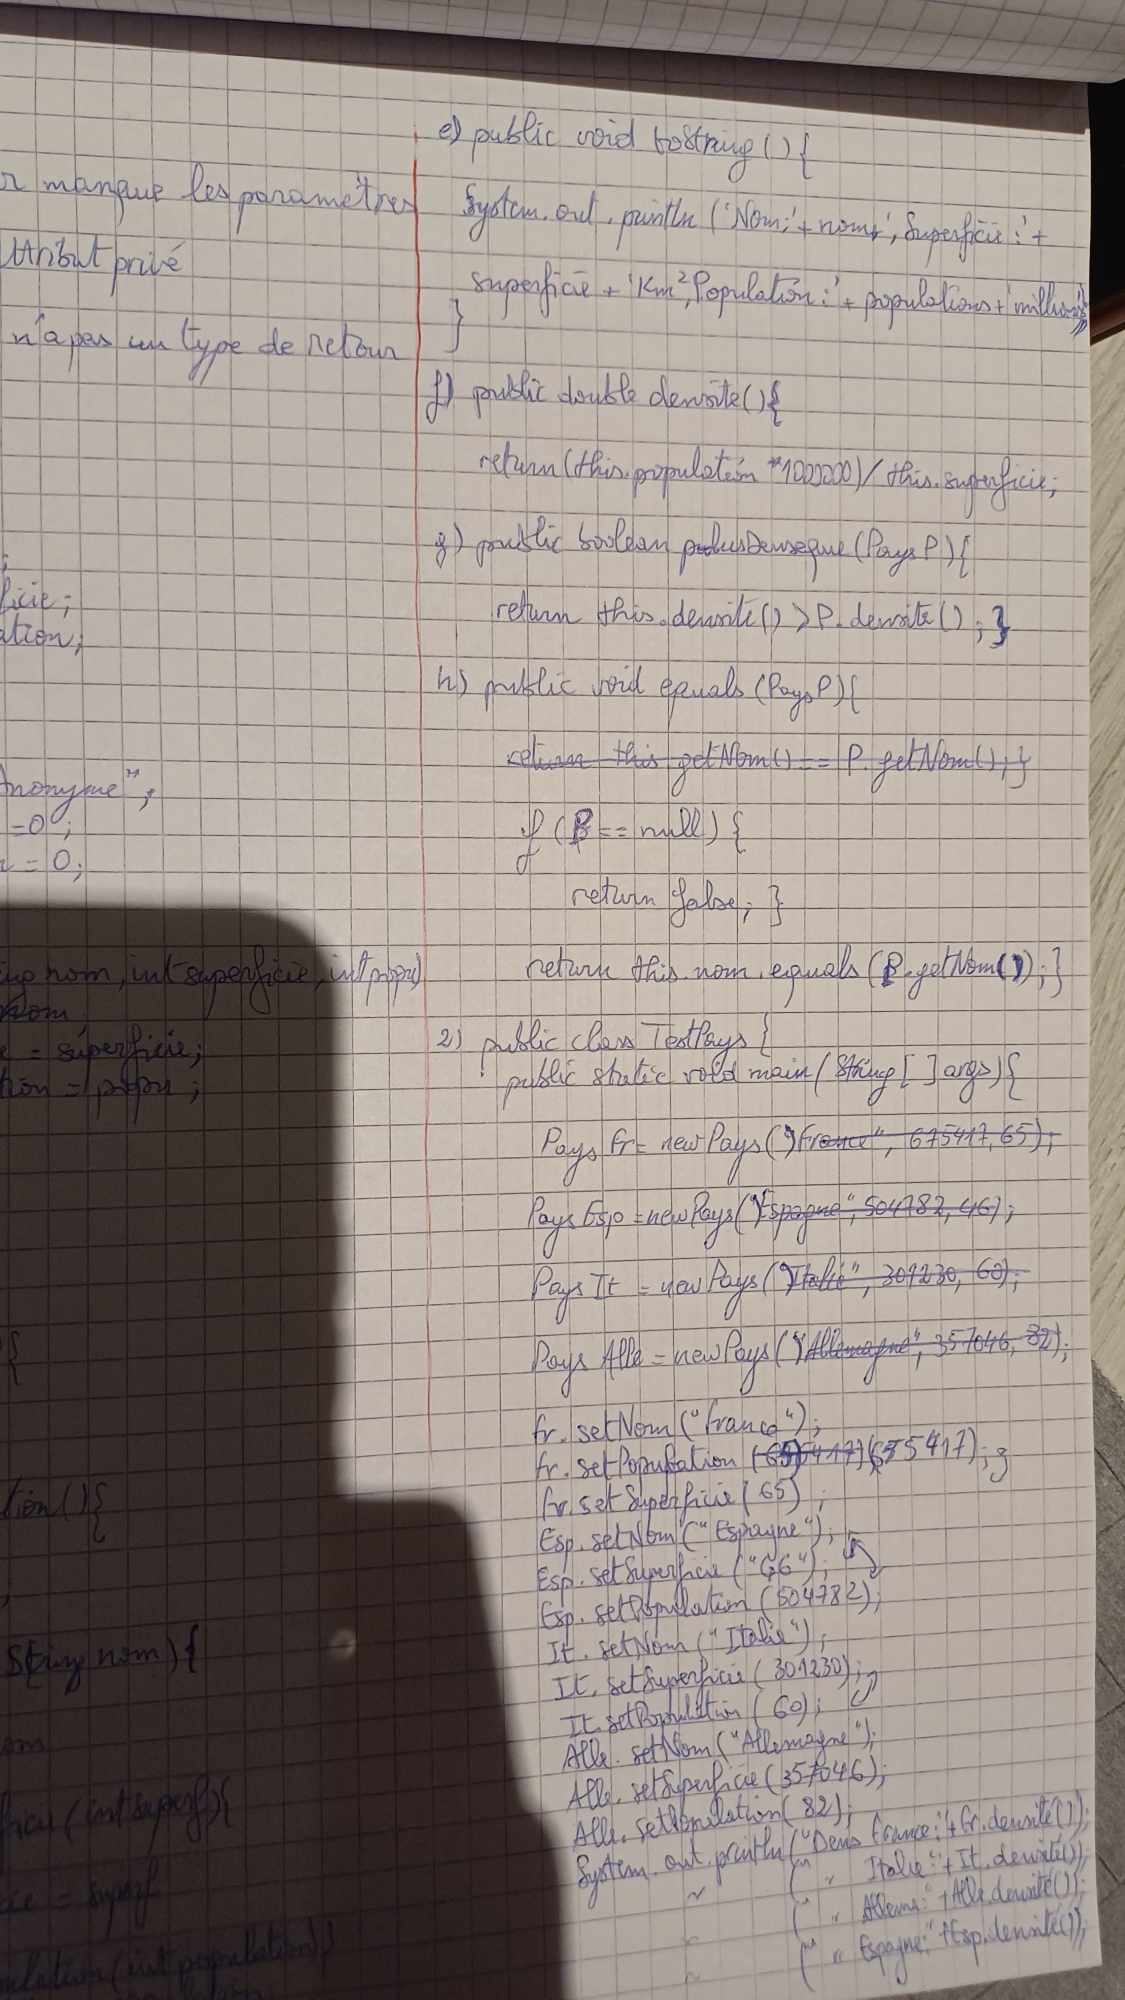 r manque les paramètres
Attribut privé
n'a pas un type de retour
;
ficie;
ation;
Anonyme";
=0;
= 0;
nom, int superficie, int popu)
nom
= superficie;
tion = popu;
{
tion(){
String nom){
om
(int superf){
= superf
pulation(int population)
e) public void toString(){
System.out.println('Nom:'+nom+', Superficie:'+
superficie + 'Km²,Population:'+ populations+'millions'
}
f) public double densite(){
return(this.population *1000000)/this.superficie;
g) public boolean plusDenseque(Pays P){
return this.densite() > P.densite(); }
h) public void equals(Pays P){
return this getNom() == P. getNom(); }
if (P == null) {
return false; }
return this.nom.equals(P.getNom()); }
2) public class TestPays {
public static void main(String [ ] args){
Pays Fr= new Pays(")France", 675417, 65);
Pays Esp = new Pays(")Espagne", 504782, 46);
Pays It = new Pays(")Italie", 301230, 60);
Pays Alle = new Pays(")Allemagne", 357046, 82);
fr. setNom("France");
fr. setPopulation (655417);
fr. setSuperficie(65);
Esp. setNom("Espagne");
Esp. setSuperficie("46");
Esp. setPopulation (504782);
It. setNom("Italie");
It. setSuperficie(301230);
It. setPopulation ( 60);
Alle. setNom("Allemagne");
Alle. setSuperficie(357046);
Alle. setPopulation( 82);
System.out.println("Dens France:"+Fr.densité());
~ (" " Italie:"+It.densité());
(" " Allema:"+Alle.densité());
~ (" " Espagne:"+Esp.densité());